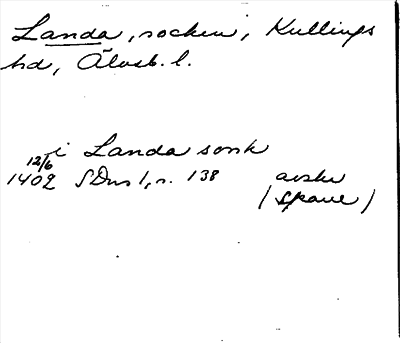 Landa, socken, Kullings
hd, Älvsb. l.
i Landa sonk
12/6
1402 SDns 1, n. 138 avskr
(Spaue)